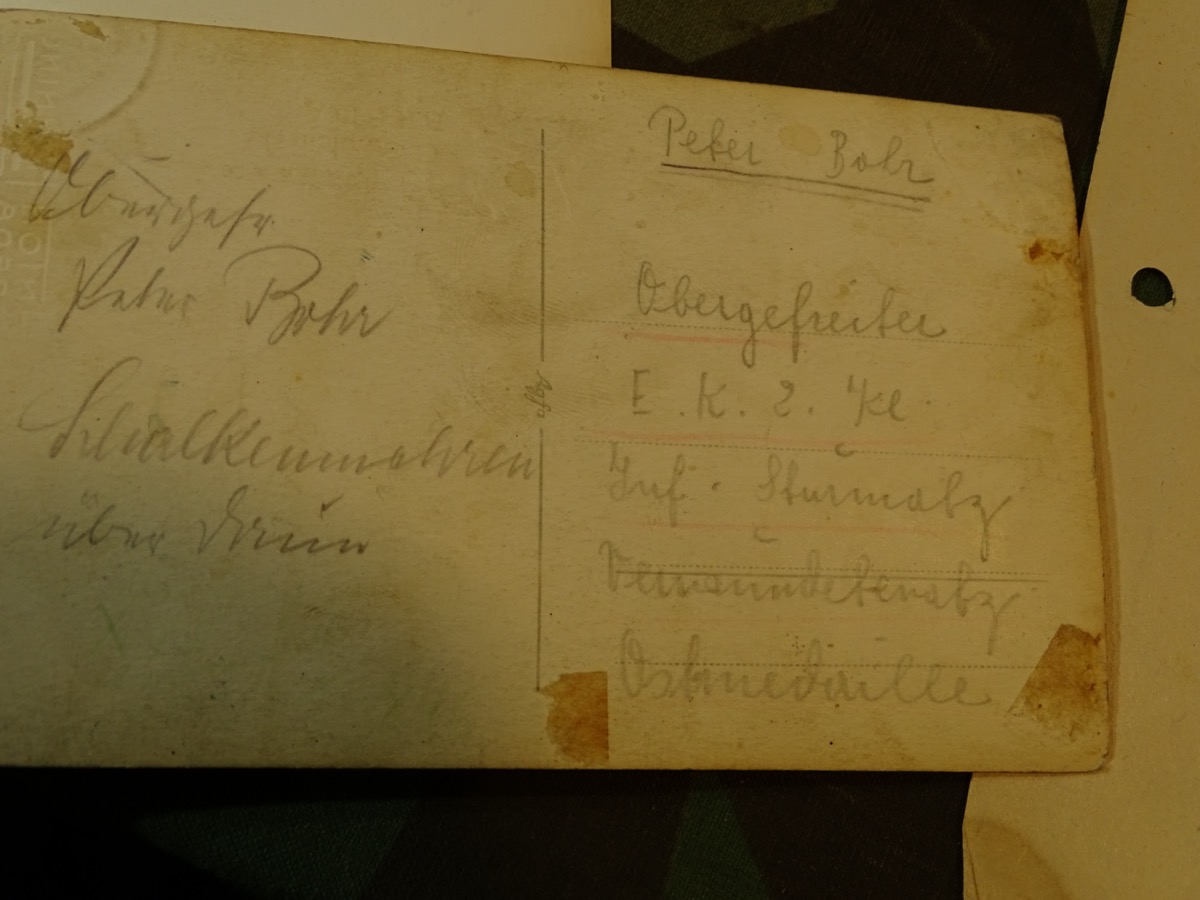 Obergefr.
Peter Bohr
Schalkenmehren
über Daun
Peter Bohr
Obergefreiter
E. K. 2. Kl.
Inf. Sturmabz
Verwundetenabz
Ostmedaille